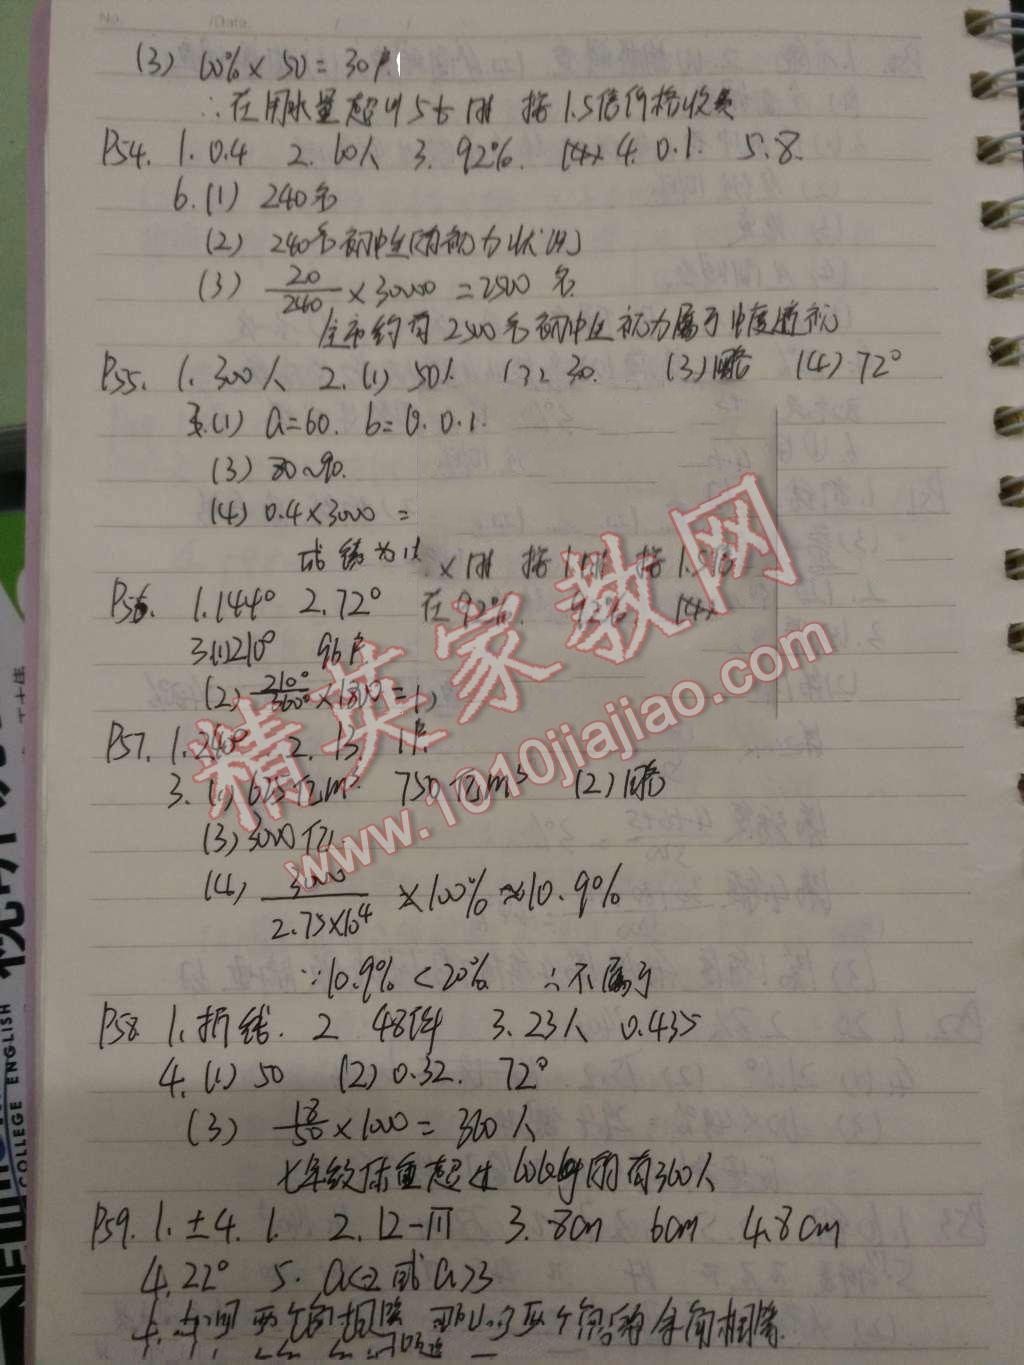 No.   /Data
(3) 60%×50=30户
∴在用水量超出5t时 按1.5倍价格收费
P54. 1. 0.4 2. 60人 3. 92%. (4) 4. 0.1. 5. 8.
6.(1) 240名
(2) 240名初中生的视力状况
(3) 20/240 ×30000 =2500名
全市约有2500名初中生视力属于中度近视
P55. 1. 300人 2. (1) 50人 (2) 30. (3)略 (4) 72°
3.(1) a=60. b=0.1.
(3) 80~90.
(4) 0.4×3000=
成绩为
P56. 1.144° 2.72° 在92%. 92%
3(1)210° 96户
(2) 210°/360° ×1800=
P57. 1.240° 2. 13. 1户.
3. (1) 625亿m³ 750亿m³ (2)略
(3)3000亿
(4) 3000/2.75×10⁴ ×100%≈10.9%
∵10.9%<20% ∴不属于
P58 1.折线. 2 48件 3. 23人 0.435
4. (1) 50 (2) 0.32. 72°
(3) 18/50 ×1000=360人
七年级体重超过60kg的有360人
P59. 1. ±4. 1. 2. 12-π 3. 8cm 6cm 4.8cm
4. 22° 5. a<2或a>3
两个角相等 那么 两个角的余角相等.
精英家教网
www.1010jiajiao.com
COLLEGE ENGLISH